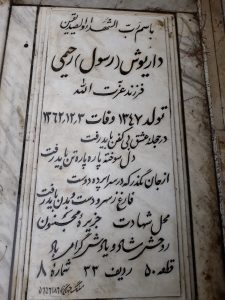 باسم رب الشهداء والصدیقین
داریوش (رسول) رحیمی
فرزند عزت الله
تولد ۱۳۴۷ وفات ۱۳۶۲,۱۲,۳
در حجله عشق بی کفن باید رفت
دل سوخته پاره پاره تن باید رفت
از جان بگذر که در سراپرده دوست
فارغ ز سر و دست و بدن باید رفت
محل شهادت جزیره مجنون
روحش شاد و یادش گرامی باد
قطعه ۵۰ ردیف ۲۲ شماره ۸